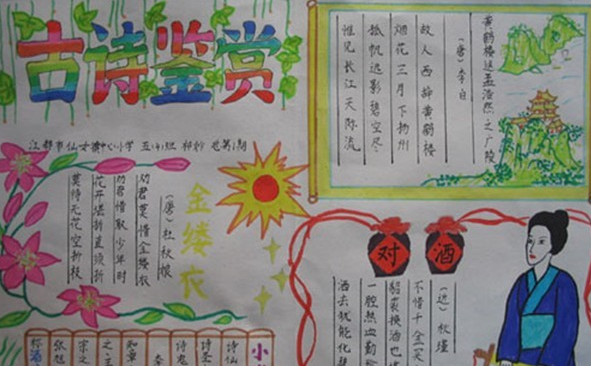 古诗鉴赏
江都市仙女镇中心小学 五(4)班
黄鹤楼送孟浩然之广陵
(唐)李白
故人西辞黄鹤楼
烟花三月下扬州
孤帆远影碧空尽
惟见长江天际流
金缕衣
(唐)杜秋娘
劝君莫惜金缕衣
劝君惜取少年时
花开堪折直须折
莫待无花空折枝
对酒
(近)秋瑾
不惜千金买
貂裘换酒也
一腔热血勤
洒去犹能化
小
诗仙
诗圣
诗鬼
知章
宗之
张旭
称酒